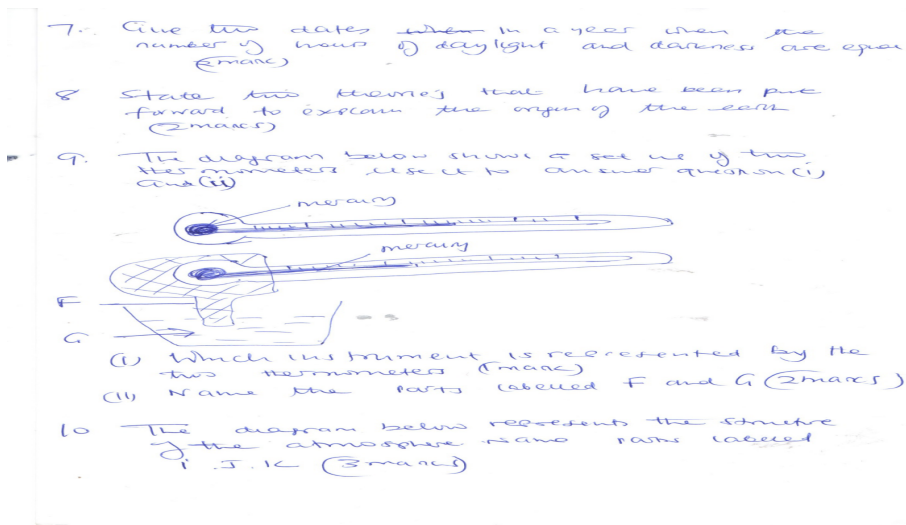 7. Give two dates when in a year when the
number of hours of daylight and darkness are equal
(2marks)
8 State two theories that have been put
forward to explain the origin of the earth
(2marks)
9. The diagram below shows a set up of two
thermometers use it to answer question (i)
and (ii)
mercury
mercury
F
G
(i) Which instrument is represented by the
two thermometers (1mark)
(ii) Name the parts labelled F and G (2marks)
10 The diagram below represents the structure
of the atmosphere name parts labeled
I. J. K (3marks)